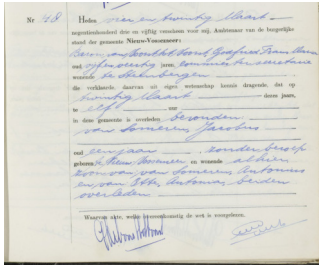 Nr 48 Heden, vier en twintig Maart
negentienhonderd drie en vijftig verscheen voor mij, Ambtenaar van de burgerlijke
stand der gemeente Nieuw-Vossemeer:
Baron van
oud vijf en veertig jaren, commies ter secretarie
wonende te Steenbergen
die verklaarde, daarvan uit eigen wetenschap kennis dragende, dat op
twintig Maart dezes jaars,
te elf uur
in deze gemeente is overleden bevonden
van Someren Jacobus
oud een jaar, zonder beroep
geboren te Nieuw Vossemeer en wonende alhier
zoon van van Someren Antonius
en van Etten Antonia, beiden
overleden
Waarvan akte, welke overeenkomstig de wet is voorgelezen.